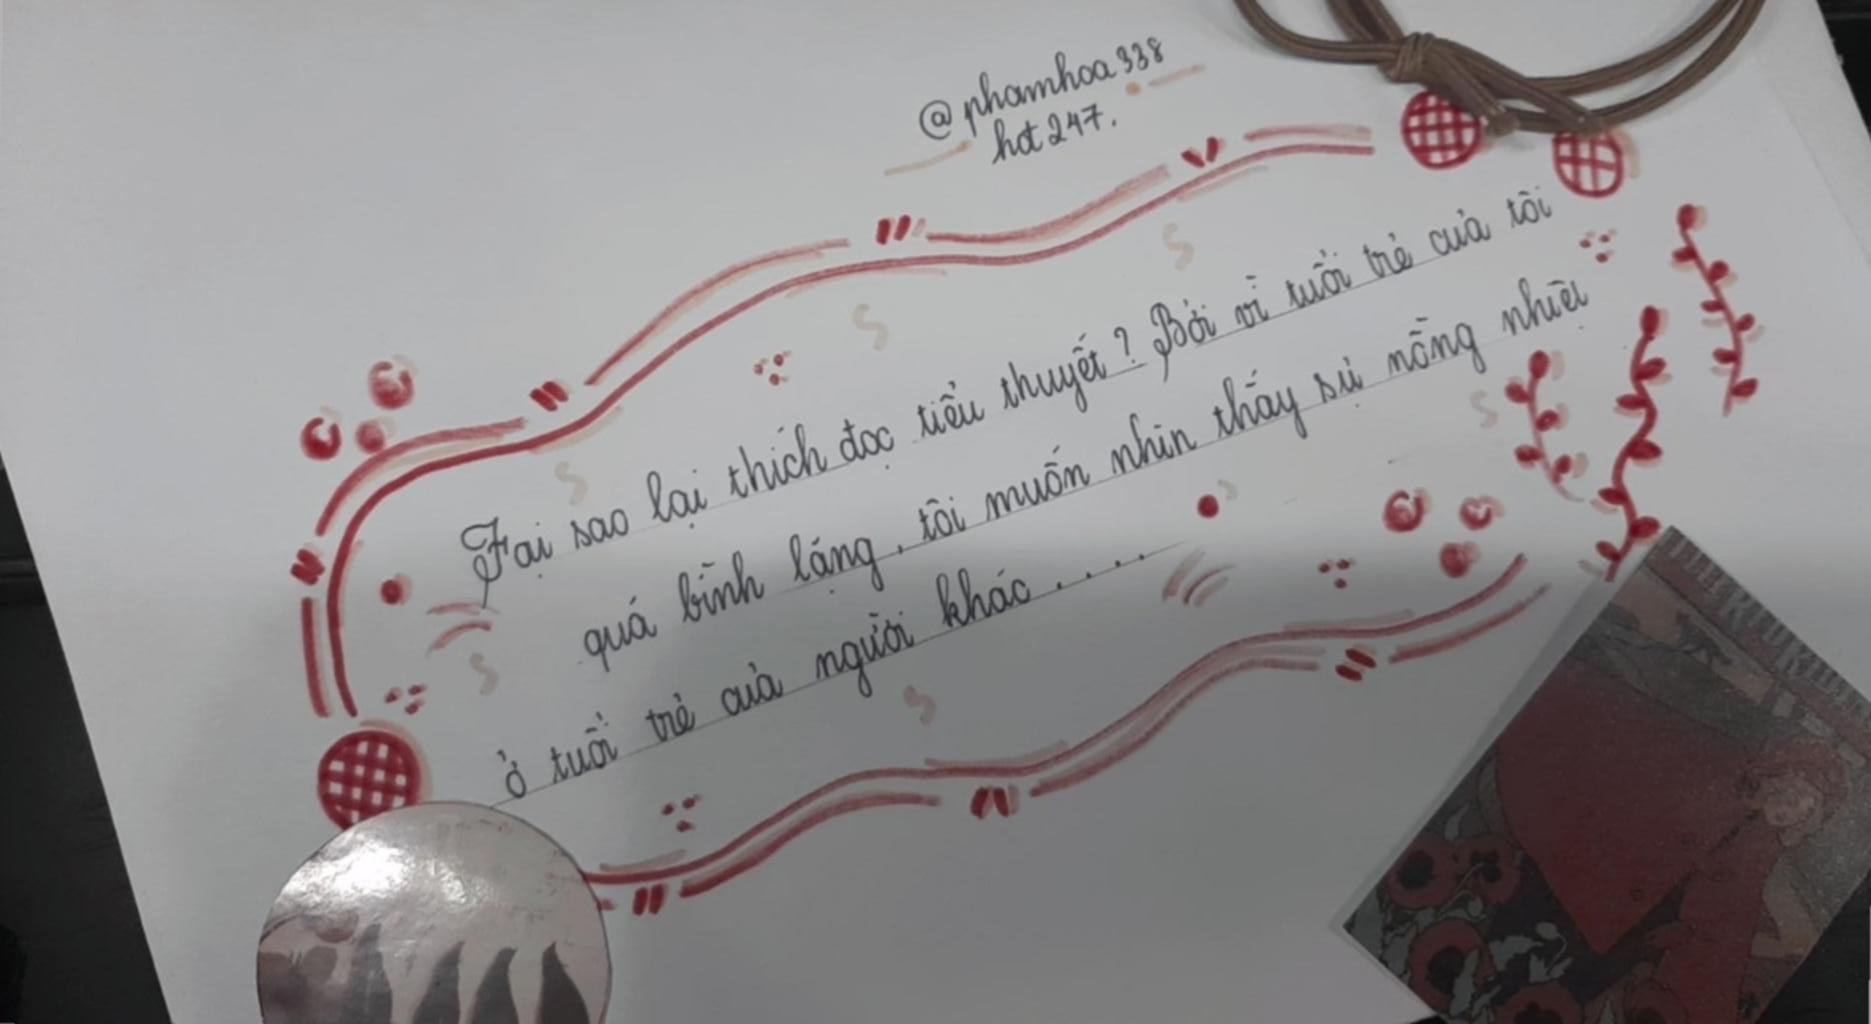 @phamhoa338
hot247.
Tại sao lại thích đọc tiểu thuyết? Bởi vì tuổi trẻ của tôi
quá bình lặng, tôi muốn nhìn thấy sự nồng nhiệt
ở tuổi trẻ của người khác.....